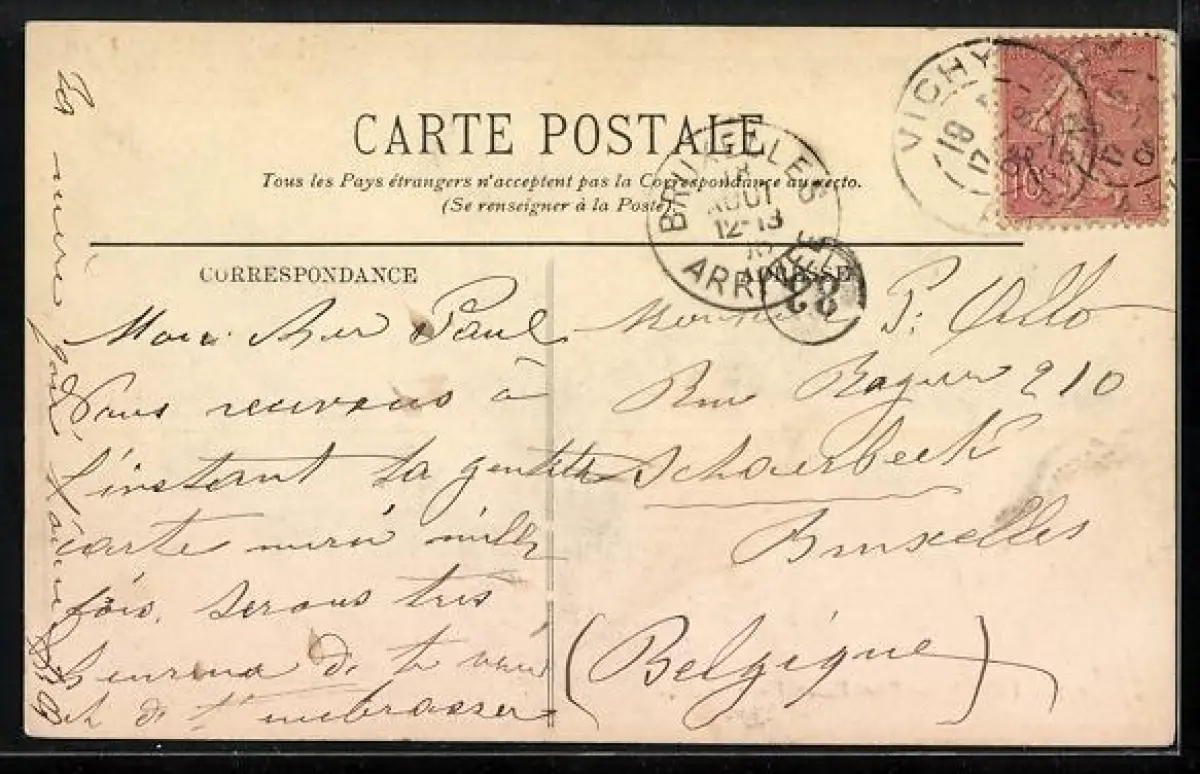 CARTE POSTALE
Tous les Pays étrangers n'acceptent pas la Correspondance au recto.
(Se renseigner à la Poste).
CORRESPONDANCE
ADRESSE
Mon cher Paul
Nous recevons à
l'instant ta gentille
carte merci mille
fois, serons très
heureux de te voir
et de t'embrasser
Monsieur P. Otto
Rue 210
Schaerbeek
Bruxelles
(Belgique)
VICHY
18
17
10
BRUXELLES
AOUT
12-13
ARRIVEE